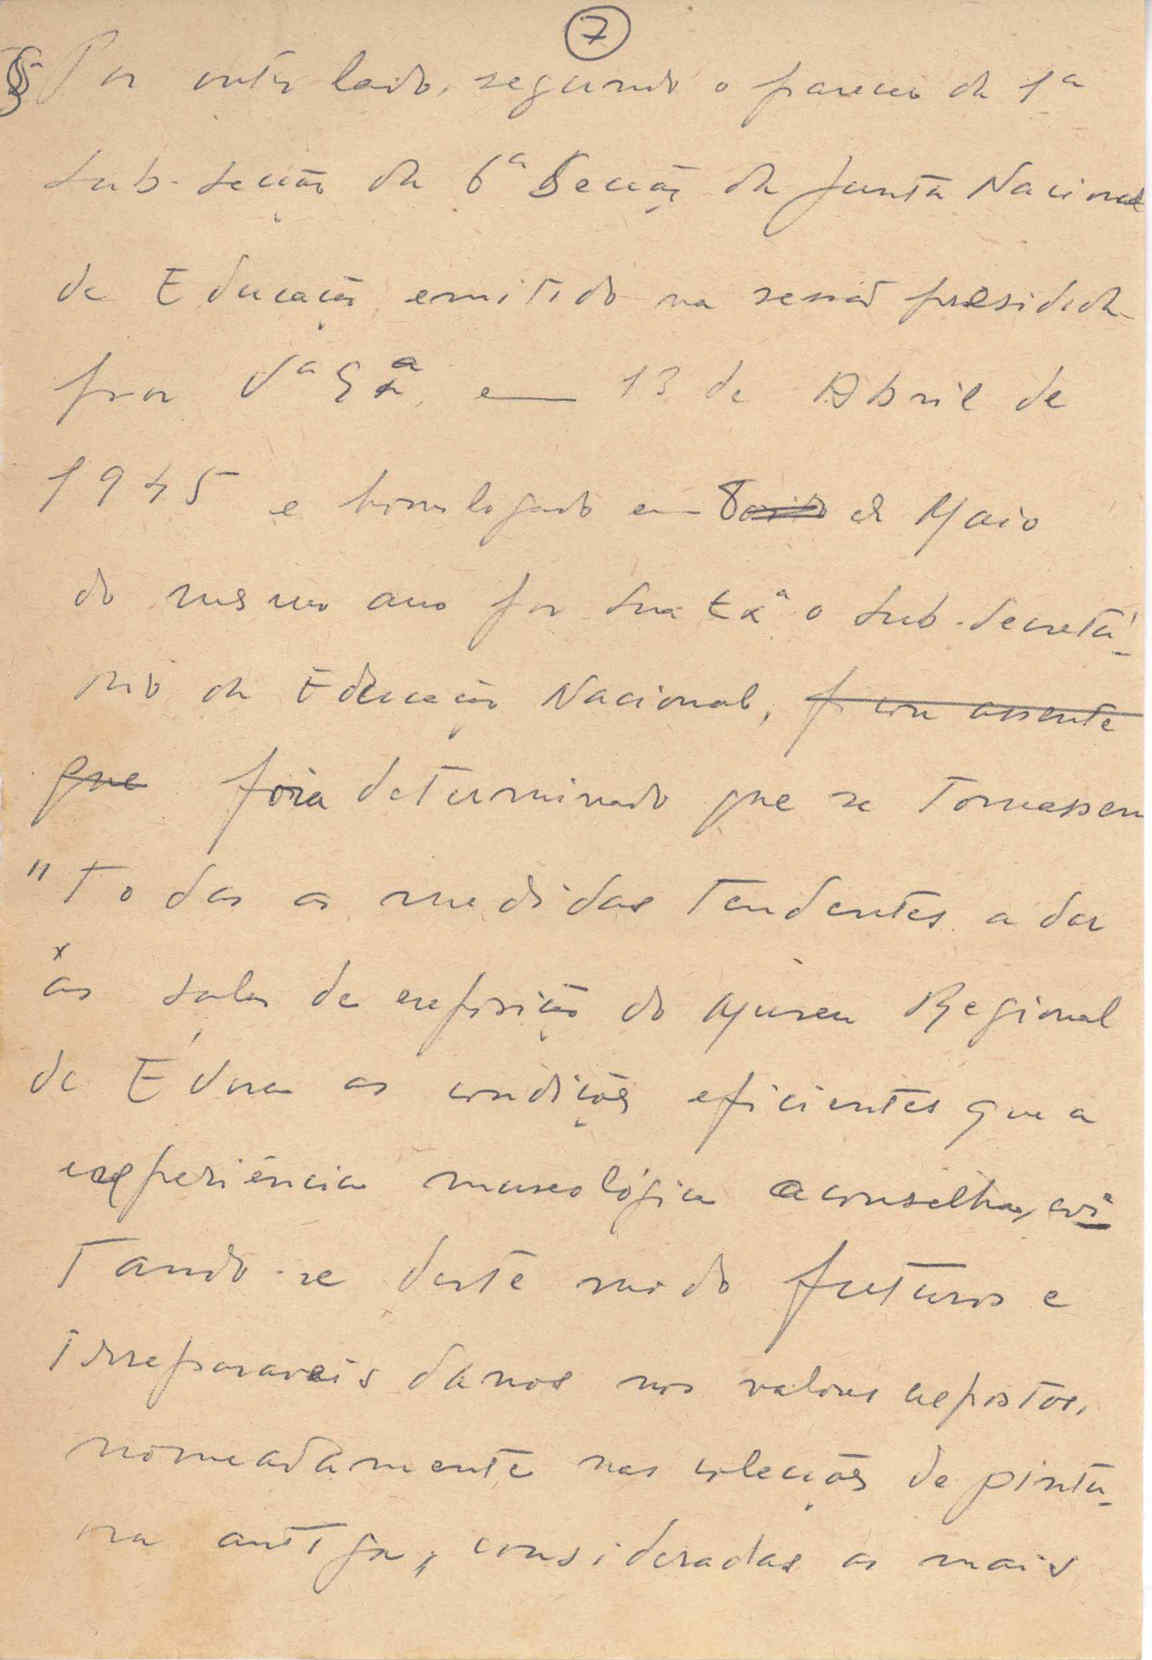 7
§ Por outro lado, segundo o parecer da 1ª
sub-secção da 6ª Secção da Junta Nacional
de Educação, emitido na sessão presidida
por Vª Exª, em 13 de Abril de
1945 e homologado em 8 de Maio
do mesmo ano por Sua Exª o Sub-Secretá-
rio da Educação Nacional, ficou assente
que fôra determinado que se tomassem
"Todas as medidas tendentes a dar
às salas de exposição do Museu Regional
de Évora as condições eficientes que a
experiência museológica aconselha, evi-
tando-se deste modo futuros e
irreparaveis danos nos valores expostos,
nomeadamente nas colecções de pintu-
ra antiga, consideradas as mais